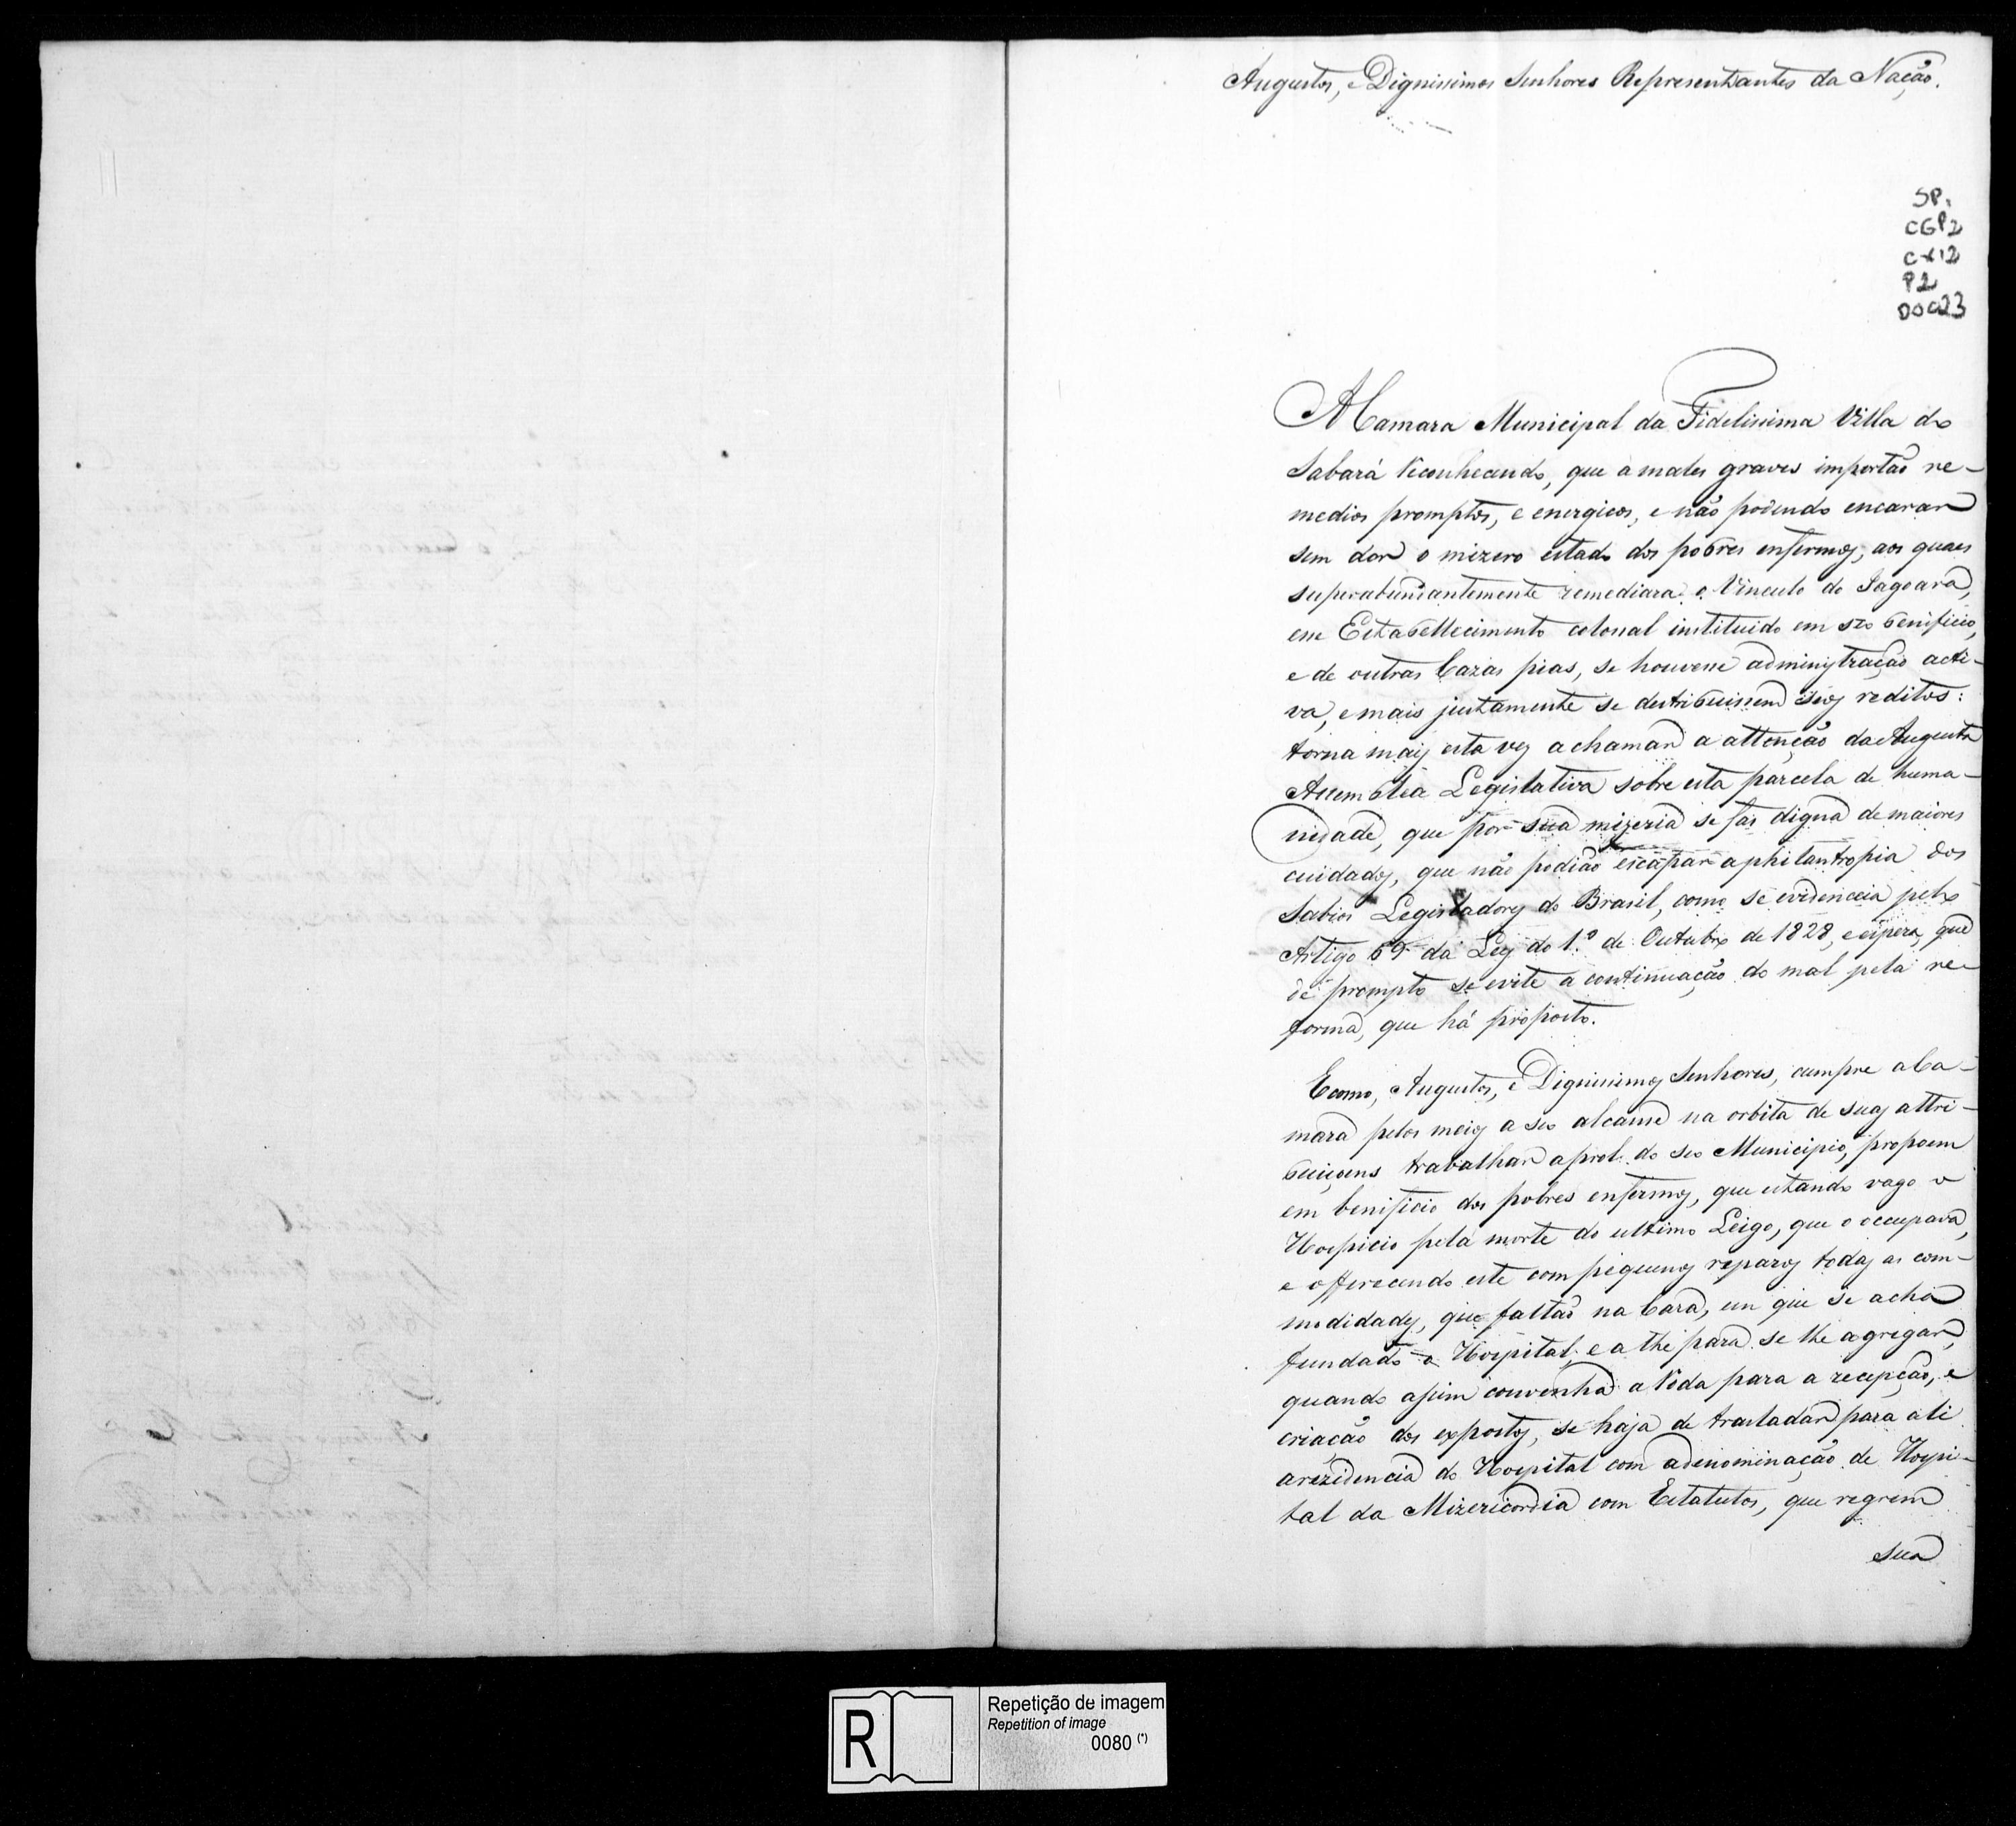 Augustos, e Dignissimos Senhores Representantes da Nação.
SP.
CGP2
CX12
P2
DOC23
A Camara Municipal da Fidelissima Villa do
Sabará reconhecendo, que a males graves importão re-
medios promptos, e energicos, e não podendo encarar
sem dor o mizero estado dos pobres enfermos, aos quaes
superabundantemente remediara o Vinculo do Jagoara,
esse Estabellecimento colonal instituido em seo benificio,
e de outras Cazas pias, se houvesse administração acti-
va, e mais justamente se destribuissem seos reditos:
torna mais esta vez a chamar a attenção da Augusta
Assemblea Legislativa sobre esta parcela de huma-
nidade, que por sua mizeria se fas digna de maiores
cuidados, que não podião escapar a philantropia dos
Sabios Legisladores do Brasil, como se evidenceia pelo
Artigo 69 da Ley do 1.º de Outubro de 1828, e espera, que
de prompto se evite a continuação do mal pela re-
forma, que há proposto.
E como, Augustos, e Dignissimos Senhores, cumpre a Ca-
mara pelos meios a seo alcance na orbita de suas attri-
buiçoens trabalhar a prol do seo Municipio, propoem
em benificio dos pobres enfermos, que estando vago o
Hospicio pela morte do ultimo Leigo, que o occupava,
e offerecendo este com piquenos reparos todas as com-
modidades, que faltão na Caza, em que se acha
fundado o Hospital, e athe para se lhe agregar,
quando assim convenha a Roda para a recepção, e
criação dos expostos, se haja de trasladar para ali
a rezidencia do Hospital com a denominação de Hospi-
tal da Mizericordia com Estatutos, que regrem
sua
R
Repetição de imagem
Repetition of image
0080 (*)